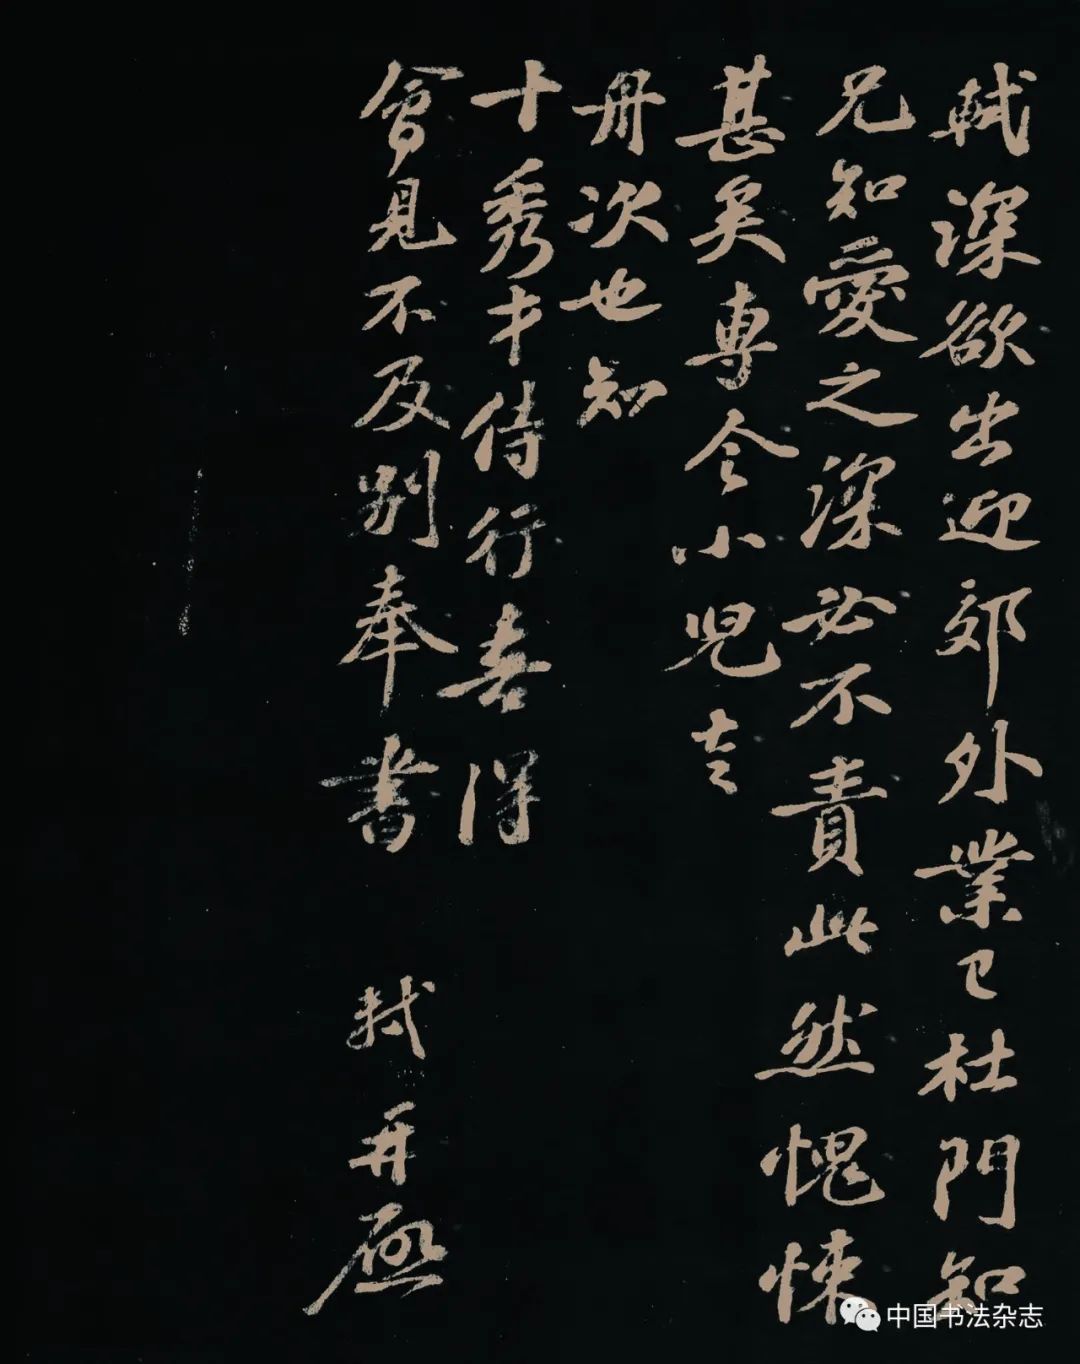 軾深欲出迎郊外業已杜門知
兄知愛之深必不責此然愧悚
甚矣專令小兒去
舟次也知
十秀才侍行喜得
會見不及別奉書 軾再啟
中国书法杂志